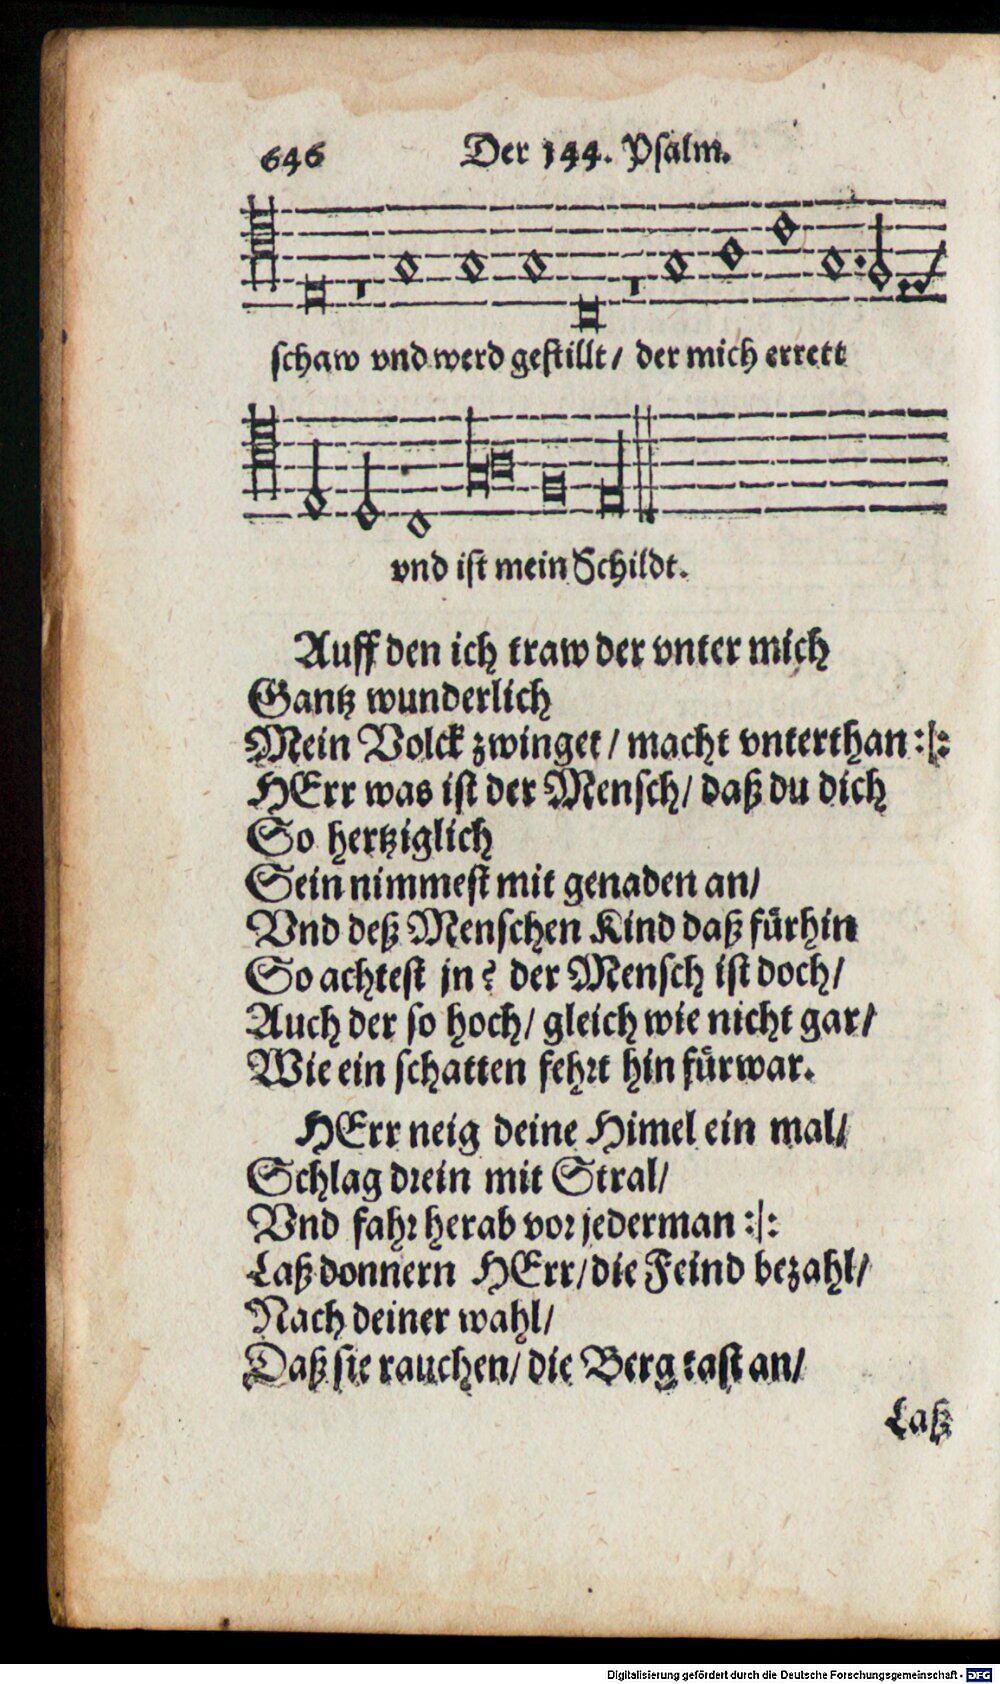 646 Der 144. Psalm.
schaw vnd werd gestillt/ der mich errett
vnd ist mein Schildt.
Auff den ich traw der vnter mich
Gantz wunderlich
Mein Volck zwinget / macht vnterthan :|:
HErr was ist der Mensch/ daß du dich
So hertziglich
Sein nimmest mit genaden an/
Vnd deß Menschen Kind daß fürhin
So achtest jn? der Mensch ist doch/
Auch der so hoch/ gleich wie nicht gar/
Wie ein schatten fehrt hin fürwar.
HErr neig deine Himel ein mal/
Schlag drein mit Stral/
Vnd fahr herab vor jederman :|:
Laß donnern HErr/ die Feind bezahl/
Nach deiner wahl/
Daß sie rauchen/ die Berg tast an/
Laß
Digitalisierung gefördert durch die Deutsche Forschungsgemeinschaft - DFG